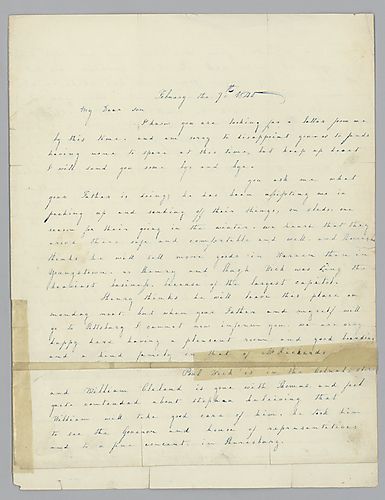 February the 7th 1845
My Dear son
I know you are looking for a letter from me
by this time. and am sorry to disappoint you as to funds
having none to spare at this time, but keep up heart
I will send you some by and bye.
you ask me what
your Father is doing; he has been assisting me in
packing up and sending of their things, on sleds, one
reason for their going in the winter, we heard that they
arrive there safe and comfortable and well, and
thinks he will sell more goods in Warren than in
Youngstown. as Henry and Hugh Wick was doing the
heaviest business because of the largest capital.
Henry thinks he will leave this place on
monday next. but when your Father and myself will
go to Pittsburg I cannot now inform you. we are very
happy here having a pleasant room and good boarding
and a kind family in that of Mr
Paul Wick is in the store
and William Cleland is gone with Thomas and feel
quite contended about stephen believing that
William will take good care of him. he took him
to see the Govenor and house of representatives
and to a fine concert. in Harisburg.